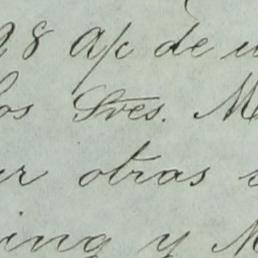 98 a/c de u
los Sres. M
ar otras
ing y M